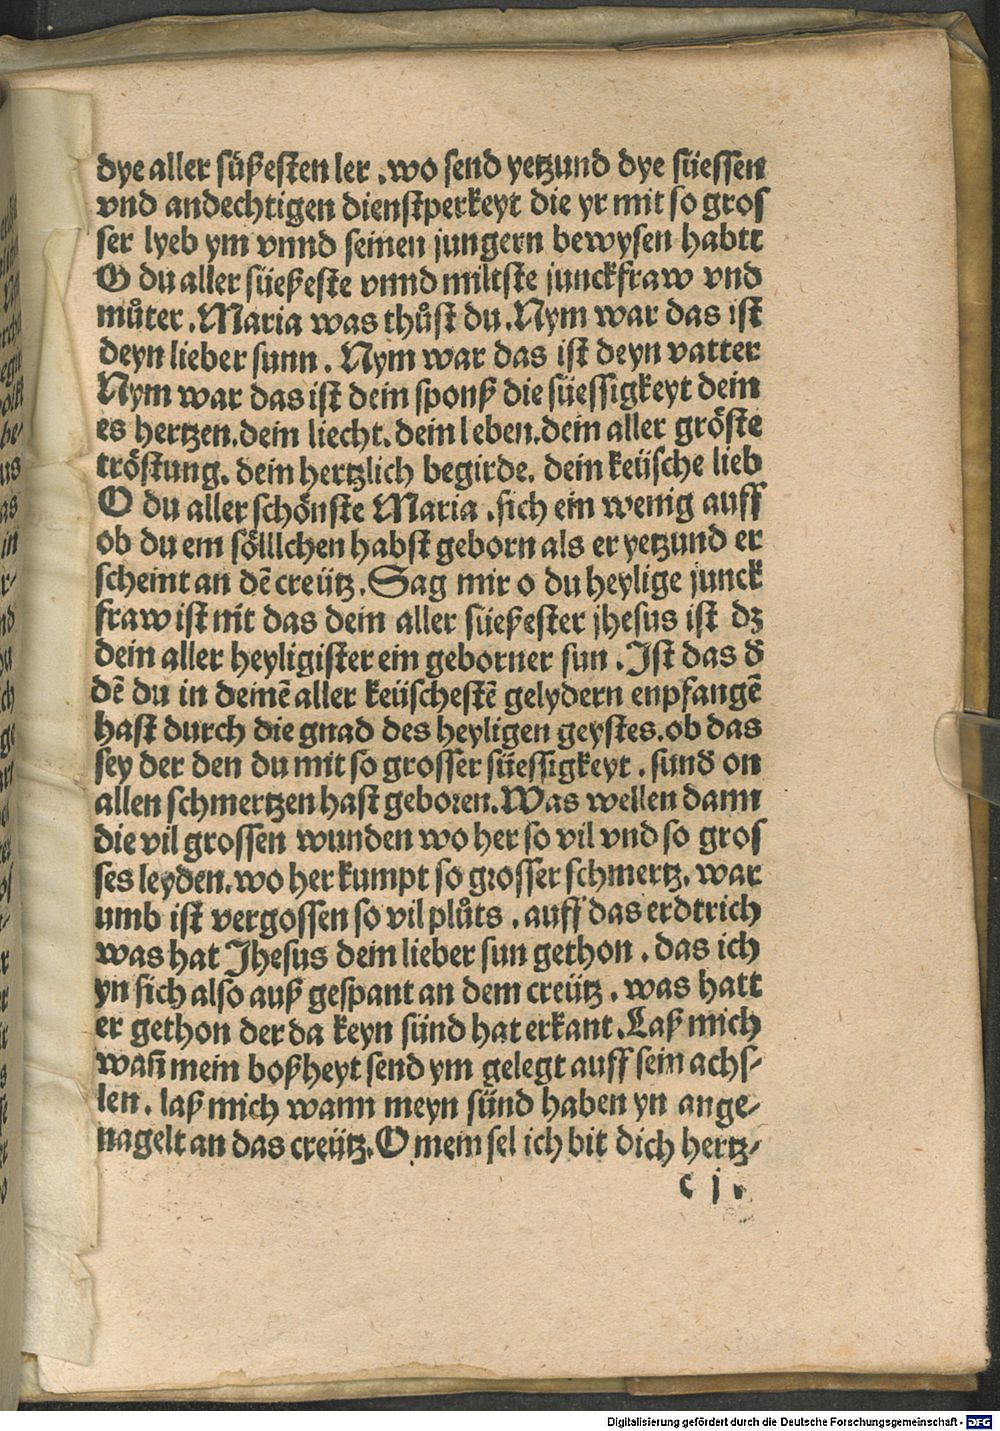 dye aller süßesten ler .wo send yetzund dye süessen
vnd andechtigen dienstperkeyt die yr mit so gros
ser lyeb ym vnnd seinen jungern bewysen habtt
O du aller süeßeste vnnd miltste junckfraw vnd
můter .Maria was thůst du .Nym war das ist
deyn lieber sunn . Nym war das ist deyn vatter
Nym war das ist dein sponß die süessigkeyt dein
es hertzen.dein liecht.dein leben.dein aller gröste
tröstung. dein hertzlich begirde. dein keüsche lieb
O du aller schönste Maria .sich ein wenig auff
ob du ein sölllchen habst geborn als er yetzund er
scheint an dē creütz .Sag mir o du heylige junck
fraw ist nit das dein aller süeßester jhesus ist dz
dein aller heyligister ein geborner sun .Ist das d̄
dē du in deinē aller keüschestē gelydern enpfangē
hast durch die gnad des heyligen geystes.ob das
sey der den du mit so grosser süessigkeyt . sund̄ on
allen schmertzen hast geboren.Was wellen dann
die vil grossen wunden wo her so vil vnd so gros
ses leyden.wo her kumpt so grosser schmertz. war
umb ist vergossen so vil plůts . auff das erdtrich
was hat Jhesus dein lieber sun gethon . das ich
yn sich also auß gespant an dem creütz . was hatt
er gethon der da keyn sünd hat erkant .Laß mich
wañ mein boßheyt send ym gelegt auff sein achs⸗
len . laß mich wann meyn sünd haben yn ange⸗
nagelt an das creütz.O mein sel ich bit dich hertz⸗
c j .
Digitalisierung gefördert durch die Deutsche Forschungsgemeinschaft - DFG